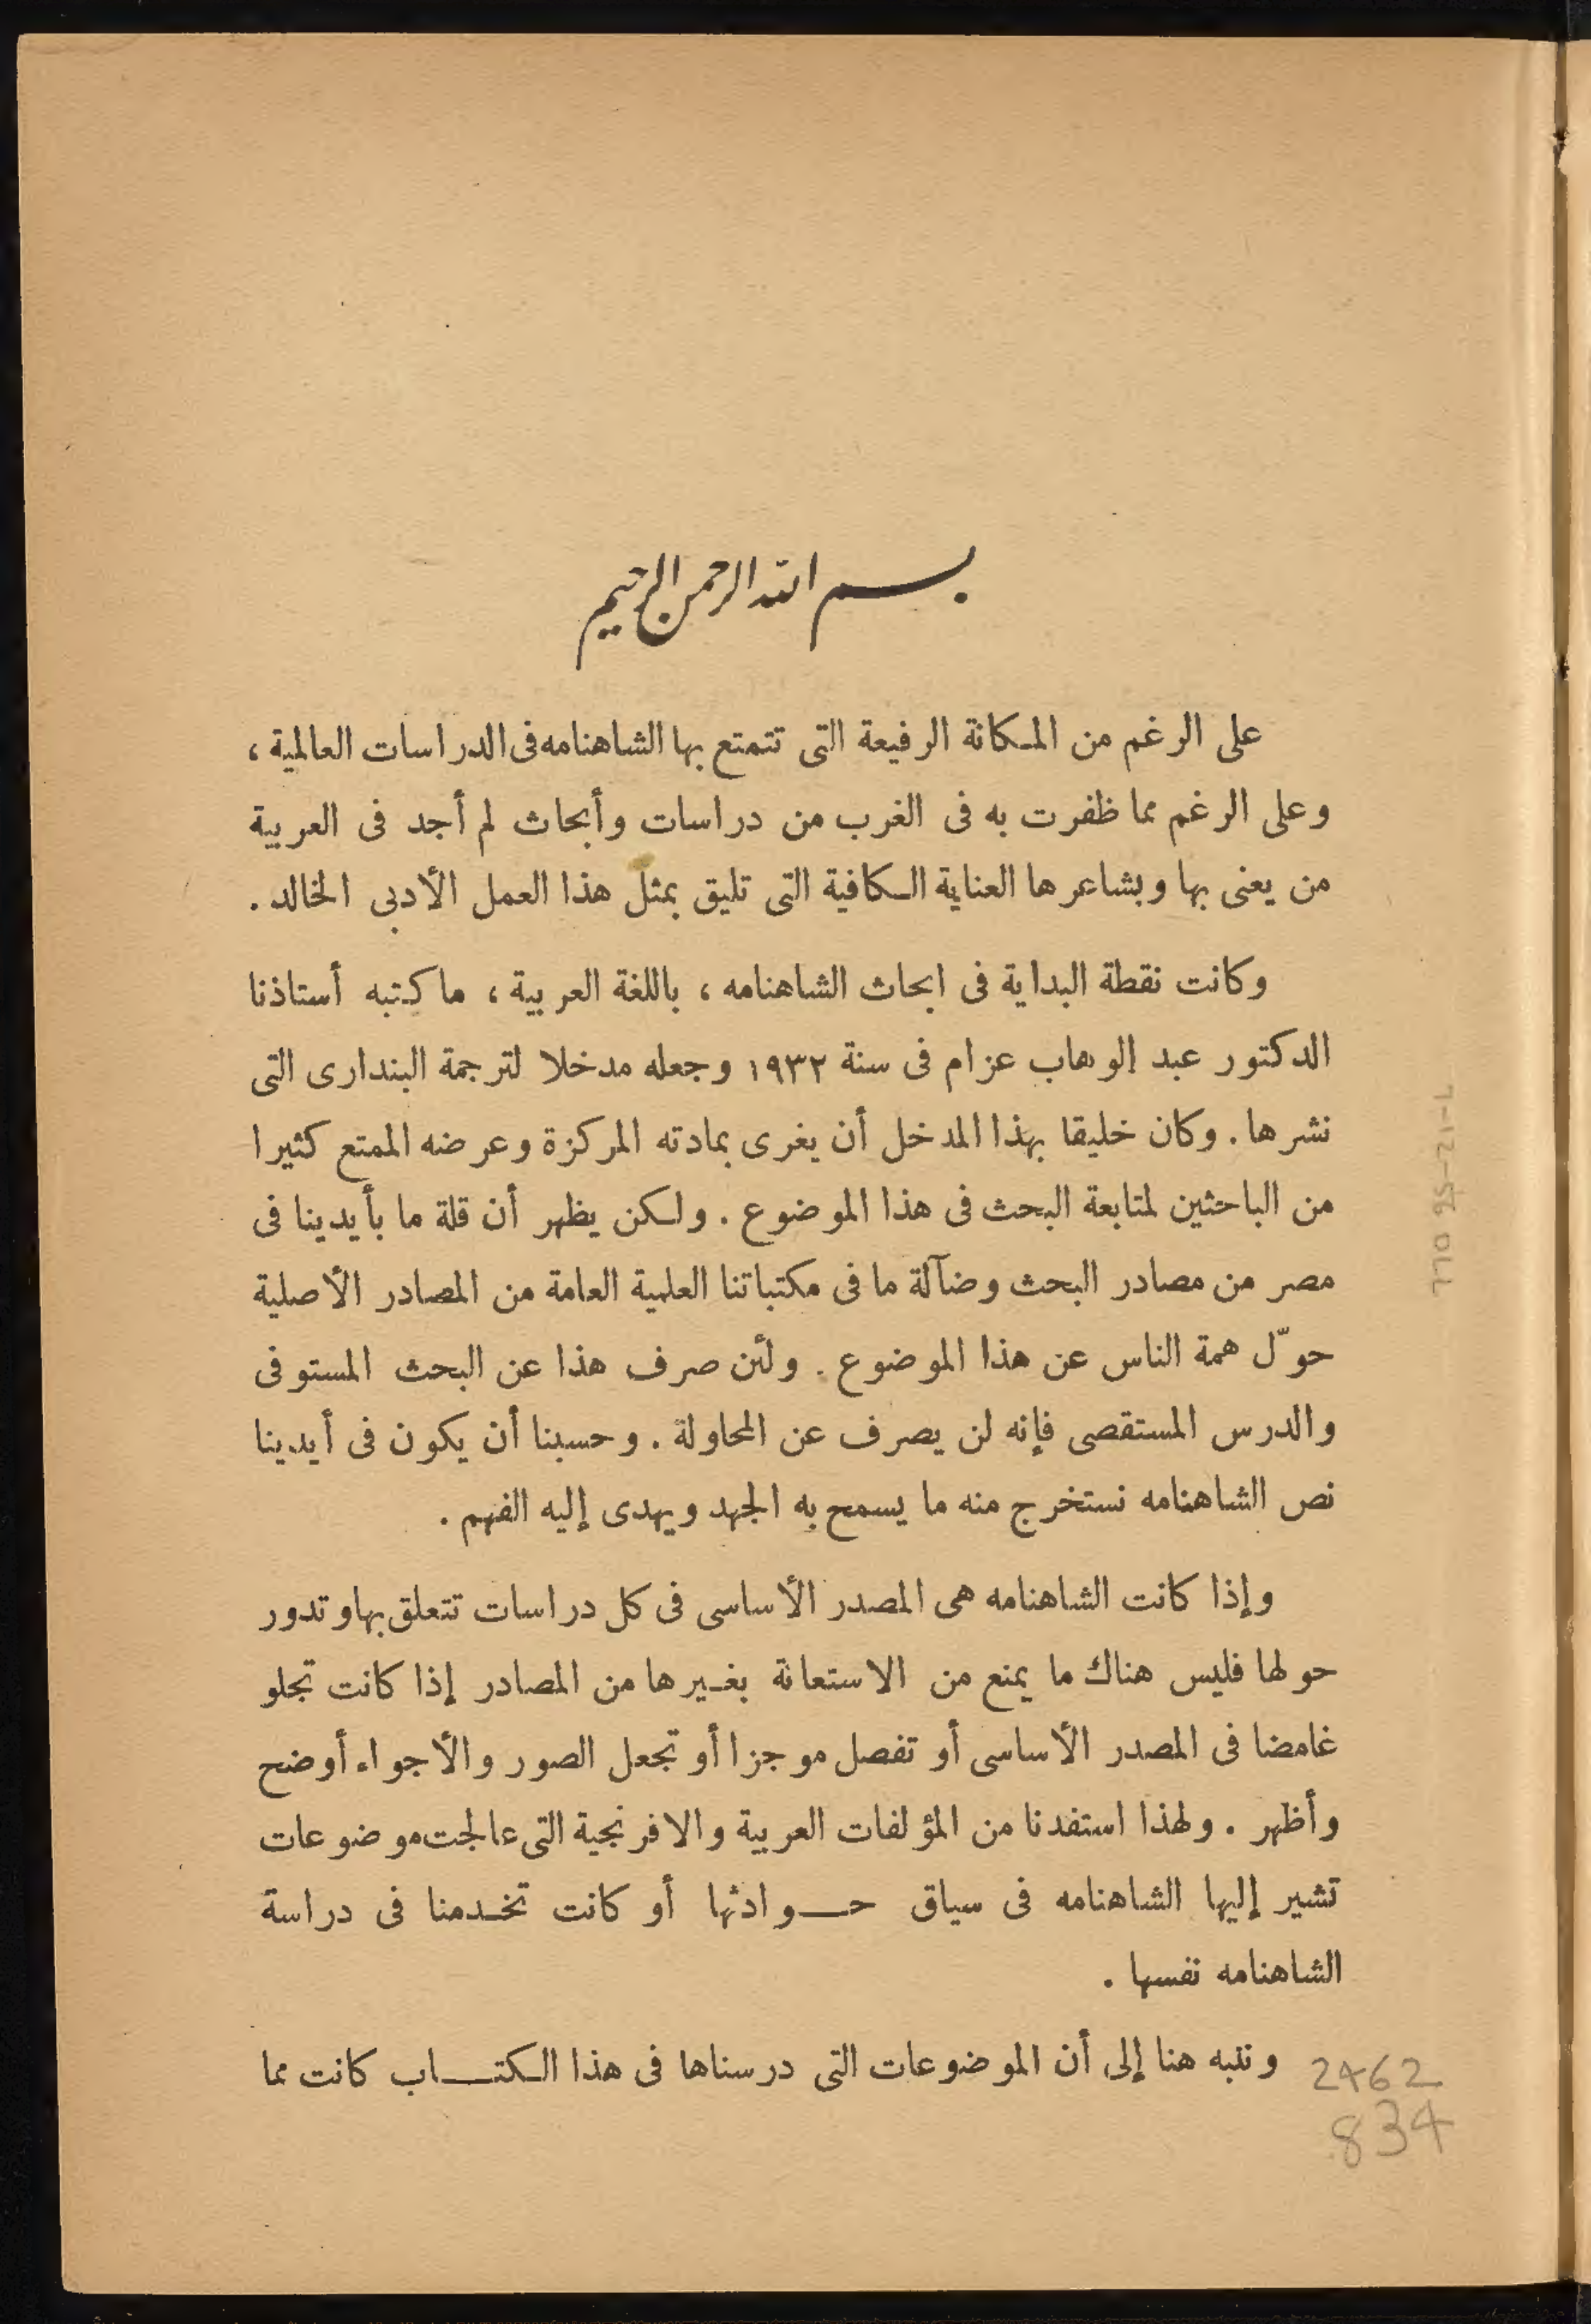 بسم الله الرحمن الرحيم
على الرغم من المكانة الرفيعة التى تتمتع بها الشاهنامه فى الدراسات العالمية ،
وعلى الرغم مما ظفرت به فى الغرب من دراسات وأبحاث لم أجد فى العربية
من يعنى بها وبشاعرها العناية الكافية التى تليق بمثل هذا العمل الأدبى الخالد .
وكانت نقطة البداية فى ابحاث الشاهنامه ، باللغة العربية ، ما كتبه أستاذنا
الدكتور عبد الوهاب عزام فى سنة ١٩٣٢ وجعله مدخلا لترجمة البندارى التى
نشرها . وكان خليقا بهذا المدخل أن يغرى بمادته المركزة وعرضه الممتع كثيرا
من الباحثين لمتابعة البحث فى هذا الموضوع . ولكن يظهر أن قلة ما بأيدينا فى
مصر من مصادر البحث وضآلة ما فى مكتباتنا العلمية العامة من المصادر الأصلية
حوّل همة الناس عن هذا الموضوع . ولئن صرف هذا عن البحث المستوفى
والدرس المستقصى فإنه لن يصرف عن المحاولة . وحسبنا أن يكون فى أيدينا
نص الشاهنامه نستخرج منه ما يسمح به الجهد ويهدى إليه الفهم .
وإذا كانت الشاهنامه هى المصدر الأساسى فى كل دراسات تتعلق بها وتدور
حولها فليس هناك ما يمنع من الاستعانة بغيرها من المصادر إذا كانت تجلو
غامضا فى المصدر الأساسى أو تفصل موجزا أو تجعل الصور والأجواء أوضح
وأظهر . ولهذا استفدنا من المؤلفات العربية والافرنجية التى عالجت موضوعات
تشير إليها الشاهنامه فى سياق حوادثها أو كانت تخدمنا فى دراسة
الشاهنامه نفسها .
وننبه هنا إلى أن الموضوعات التى درسناها فى هذا الكتاب كانت مما
2462
.834